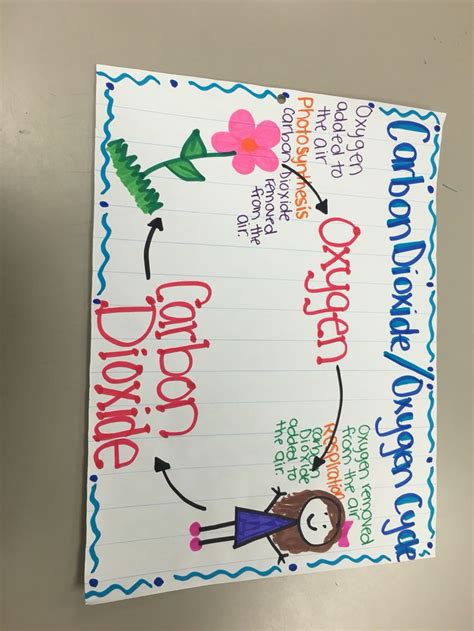 Carbon Dioxide/Oxygen Cycle
Oxygen
added to
the air
Photosynthesis
Carbon Dioxide
removed
from the
air.
Oxygen
Oxygen removed
from the air
Respiration
Carbon
Dioxide
added to
the air
Carbon
Dioxide